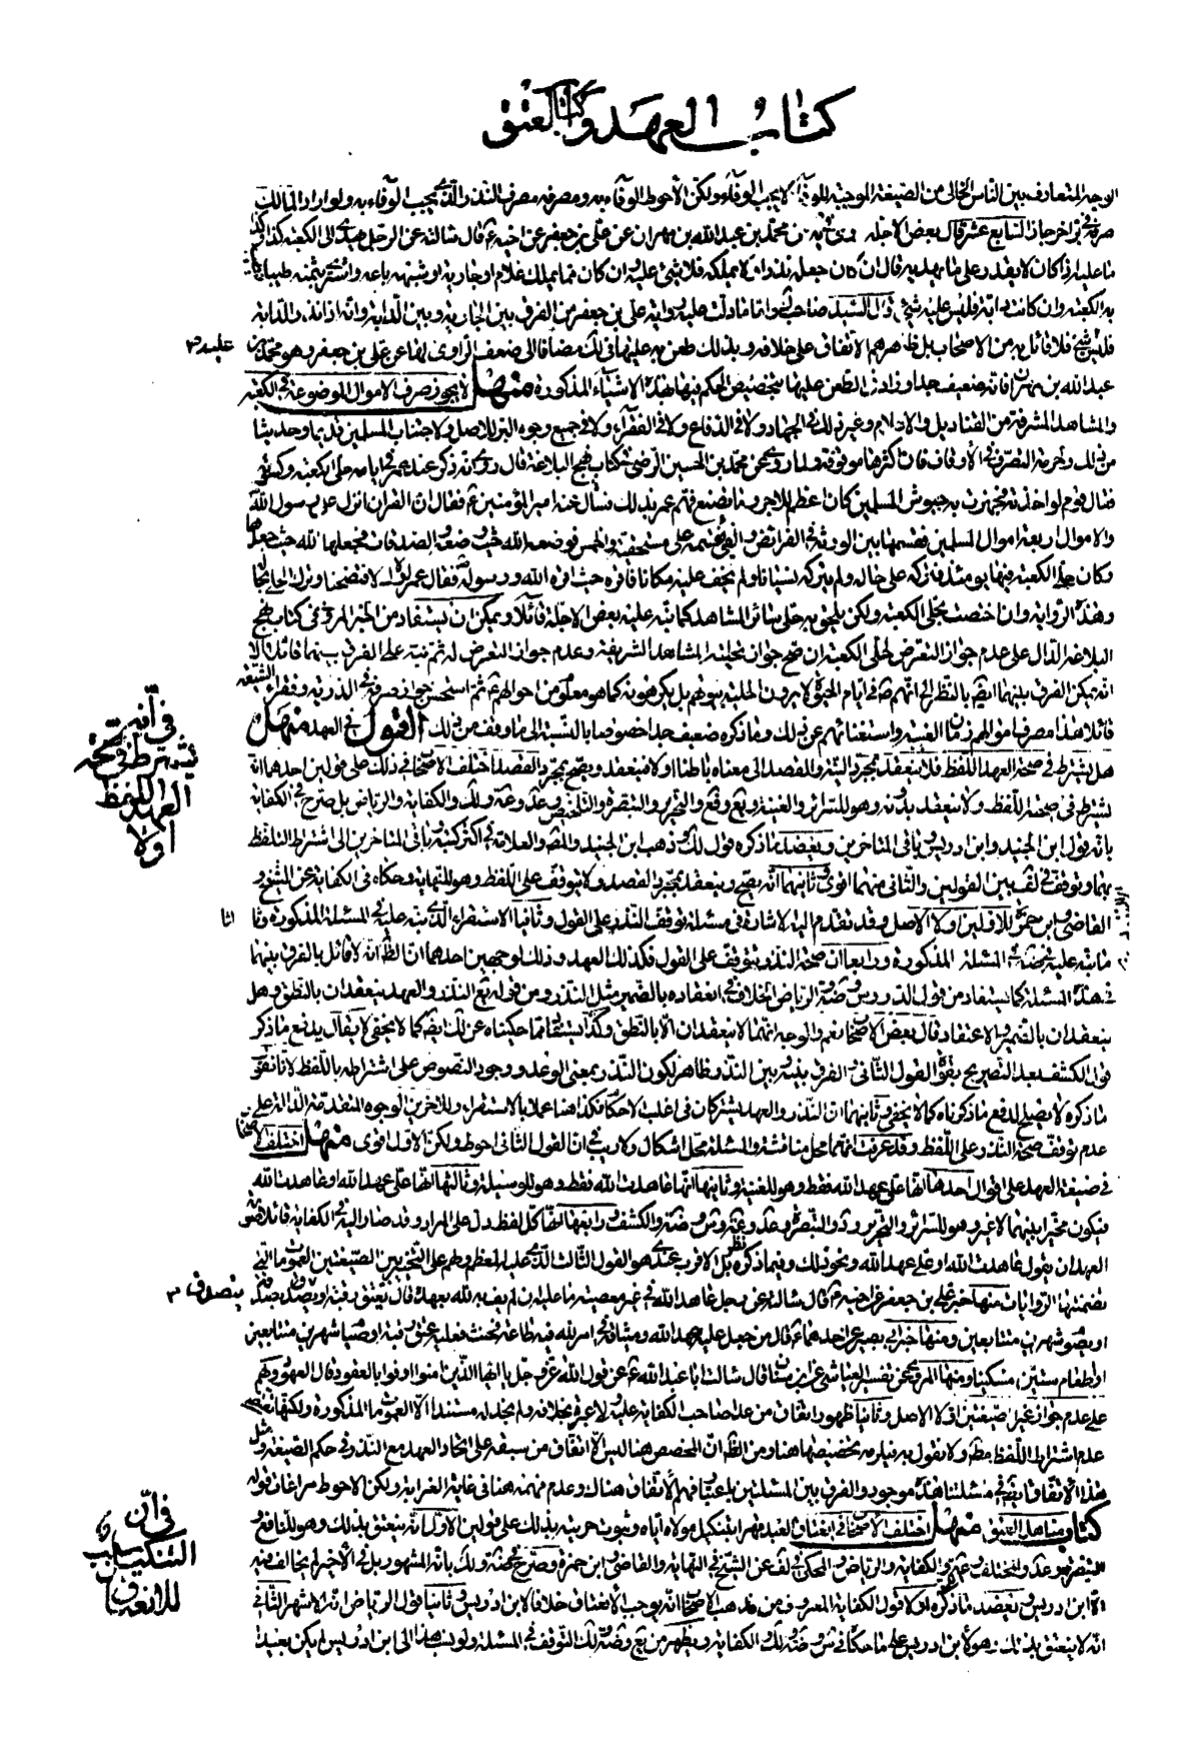 كتاب العهد وكتاب العتق
الوجه المتعارف بين الناس الخالى من الصيغة الموجبة للوفاء لا يجب الوفاء ولكن الأحوط الوفاء به ومصرفه مصرف النذر الذى يجب الوفاء به ولو اراد المالك
صرفه فى اخر جاز السابع عشر قال بعض الاجلة بن محمد بن عبد الله بن مهران عن على بن جعفر عن اخيه ع قال سالته عن الرجل يهدى الى الكعبة كذا وكذا
ما عليه اذا كان لا يقدر على ما يهديه قال ان كان جعله نذرا و لا يملكه فلا شئ عليه و ان كان مما يملك غلام او جارية او شبهه باعه واشترى بثمنه طيبا
به الكعبة وان كانت دابة فليس عليه شئ قال السيد صاحب واما ما دلت عليه رواية على بن جعفر من الفرق بين الجارية وبين الدابة وانه اذا نذر الدابة
فليس شئ فلا قائل به من الاصحاب بل ظاهرهم الاتفاق على خلافه وبذلك طعن به عليها فى لك مضافا الى ضعف الراوى لها عن على بن جعفر وهو محمد بن
عبد الله بن مهران فانه ضعيف جدا وزاد فى الطعن عليها بتخصيص الحكم فيها بهذه الاشياء المذكورة منهل لا يجوز صرف الاموال الموضوعة فى الكعبة
والمشاهد المشرفة من القناديل و وغير ذلك فى الجهاد ولا فى الدفاع ولا فى الفقراء ولا فى جميع وجوه البر للاصل ولاجتناب المسلمين قديما وحديثا
من ذلك ولحرمة التصرف فى الأوقاف فان اكثرها موقوفة ولما روى عن محمد بن الحسين الرضى فى كتاب نهج البلاغة قال روى انه ذكر عند عمر فى ايامه حلى الكعبة وكثرته
فقال قوم لو اخذته فجهزت به جيوش المسلمين كان اعظم للاجر وما تصنع فهم عمر بذلك فسأل عنه امير المؤمنين ع فقال ان القران انزل على رسول الله
والاموال اربعة اموال المسلمين فقسمها بين الورثة فى الفرائض والفئ فقسمه على مستحقيه والخمس فوضعه الله حيث وضعه والصدقات فجعلها الله حيث جعلها
وكان حلى الكعبة فيها يومئذ فتركه على حاله ولم يتركه نسيانا ولم يخف عليه مكانا فاقره حيث اقره الله ورسوله فقال عمر لولاك لافتضحنا وترك الحلى بحاله
وهذه الرواية وان اختصت بحلى الكعبة ولكن يلحق به حلى سائر المشاهد كما نبه عليه بعض الاجلة قائلا ويمكن ان يستفاد من الخبر المروى فى كتاب نهج
البلاغة الدال على عدم جواز التعرض لحلى الكعبة ان صح جواز تحلية المشاهد الشريفة وعدم جواز التعرض له ثم نبه على الفرق بينهما قائلا الا
انه يمكن الفرق بينهما ايضا بالنظر الى انهم ع فى ايام الحيوة لا يرون الحلية ببيوتهم بل يكرهونه كما هو معلوم من احوالهم ع ثم استحسن جواز صرفه فى الذرية وفقراء الشيعة
قائلا هذا مصرف اموالهم زمان الغيبة واستغنائهم عن ذلك وما ذكره ضعيف جدا خصوصا بالنسبة الى ما وقف من ذلك القول فى العهد منهل
هل يشترط فى صحة العهد اللفظ فلا ينعقد بمجرد النية والقصد الى معناه باطنا او لا فينعقد ويصح بمجرد القصد اختلف الاصحاب فى ذلك على قولين احدهما انه
يشترط فى صحته اللفظ ولا ينعقد بدونه وهو للسرائر والغنية و والتحرير والتبصرة والتلخيص و والكفاية والرياض بل صرح فى الكفاية
بانه قول ابن الجنيد وابن ادريس وباقى المتاخرين ويعضد ما ذكره قول ذهب ابن الجنيد والعلامة فى اكثر كتبه وباقى المتاخرين الى اشتراط التلفظ
بهما وتوقف فى بين القولين والثانى منهما اقوى وثانيهما انه يصح وينعقد بمجرد القصد ولا يتوقف على اللفظ وهو للنهاية وحكاه فى الكفاية عن الشيخ و
القاضى وابن حمزة للاولين اولا الاصل وقد تقدم اليه الاشارة فى مسئلة توقف النذر على القول وثانيا الاستقراء الذى نبه عليه فى المسئلة المذكورة
ما نبه عليه المسئلة المذكورة ورابعا ان صحة النذر يتوقف على القول فكذلك العهد وذلك لوجهين احدهما ان الظ انه لا قائل بالفرق بينهما
فى هذه المسئلة كما يستفاد من قول الدروس الرياض الخلاف فى انعقاده بالضمير مثل النذر ومن قوله النذر والعهد ينعقدان بالنطق وهل
ينعقدان بالضمير والاعتقاد قال بعض الاصحاب نعم والوجه انهما لا ينعقدان الا بالنطق وكذا يستفاد مما حكيناه عن لك ايضا كما لا يخفى لا يقال يدفع ما ذكر
قول الكشف بعد التصريح بقوة القول الثانى الفرق بينه وبين النذر ظاهر لكون النذر بمعنى الوعد ووجود النصوص على اشتراطه باللفظ لانا نقول
ما ذكره لا يصلح لدفع ما ذكرناه كما لا يخفى وثانيهما ان النذر والعهد يشتركان فى اغلب الاحكام فكذا هنا عملا بالاستقراء وللاخرين الوجوه المتقدمة الدالة على
عدم توقف صحة النذر على اللفظ وقد عرفت انها محل مناقشة والمسئلة محل اشكال ولا ريب فى ان القول الثانى احوط ولكن الاول اقوى منهل اختلف الاصحاب
فى صيغة العهد على اقوال احدها انها على عهد الله فقط وهو للغنية وثانيها انها عاهدت الله فقط وهو للوسيلة وثالثها انها على عهد الله او عاهدت الله
فيكون مخيرا بينهما لا غير وهو للسرائر والتحرير والتبصرة والكشف ورابعها انها كل لفظ دل على المراد وقد صار اليه فى الكفاية قائلا صورة
العهد ان يقول عاهدت الله او على عهد الله ونحو ذلك وفيما ذكره نظر بل الاقرب عندى هو القول الثالث الذى عليه المعظم ولهم على التخيير بين الصيغتين العمومات التى
تضمنتها الروايات منها خبر على بن جعفر عن اخيه ع قال سالته عن رجل عاهد الله فى غير معصية ما عليه ان لم يف لله بعهده قال يعتق رقبة او يتصدق بصدقة
او يصوم شهرين متتابعين ومنها خبر ابى بصير عن احدهما ع قال من جعل عليه عهد الله وميثاقه فى امر لله فيه طاعة فحنث فعليه عتق رقبة او صيام شهرين متتابعين
او اطعام ستين مسكينا ومنها المروى عن تفسير العياشى عن ابن سنان قال سالت ابا عبد الله ع عن قول الله عز وجل يا ايها الذين امنوا اوفوا بالعقود قال العهود ولهم
على عدم جواز غير الصيغتين اولا الاصل وثانيا ظهور اتفاق من عدا صاحب الكفاية عليه ولا عبرة بخلافه ولم نجد له مستندا الا العمومات المذكورة ولكنها
عدم اشتراط اللفظ مطلقا ولا يقول به فيلزمه تخصيصها هنا ومن الظ ان المخصص هنا ليس الا اتفاق من سبقه على اتحاد العهد مع النذر فى حكم الصيغة ومثل
هذا الاتفاق ايضا فى مسئلتنا هذه موجود والفرق بين المسئلتين باعتبار فهم الاتفاق هناك وعدم فهمه هنا فى غاية الغرابة ولكن الاحوط مراعاة قوله
كتاب مناهل العتق منهل اختلف الاصحاب فى انعتاق العبد قهرا بتنكيل مولاه اياه وثبوت حريته بذلك على قولين الاول انه ينعتق بذلك وهو للنافع و
التبصرة و والمختلف والكفاية والرياض والمحكى فى لف عن الشيخ فى النهاية والقاضى وابن حمزة وصرح بانه المشهور بل فى الأخير لم يخالف فيه
الا ابن ادريس ويعضد ما ذكره اولا قول الكفاية المعروف من مذهب الاصحاب انه يوجب الانعتاق خلافا لابن ادريس وثانيا قول الرياض انه الاشهر الثانى
انه لا ينعتق بذلك وهو لابن ادريس على ما حكاه فى الكفاية ويظهر من التوقف فى المسئلة ولو نسب هذا الى ابن ادريس لم يكن بعيدا
عليه
فى أنه يشترط فى صحة العهد اللفظ اولا
يتصدق
فى ان التنكيل سبب للانعتاق